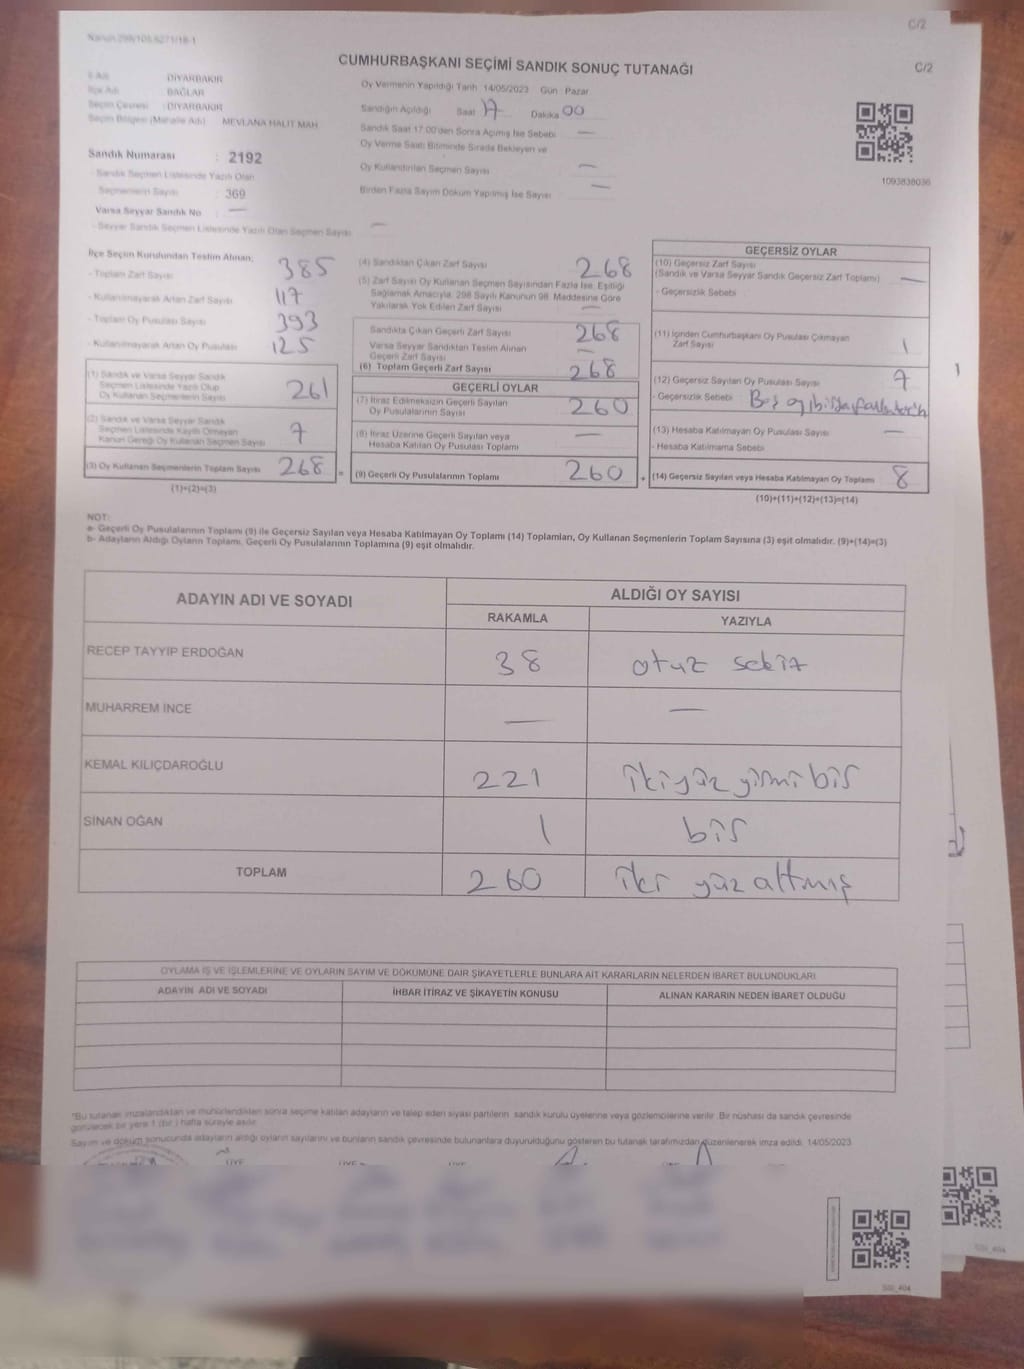 C/2
CUMHURBAŞKANI SEÇİMİ SANDIK SONUÇ TUTANAĞI
C/2
İl Adı DİYARBAKIR
İlçe Adı BAĞLAR
Seçim Çevresi : DİYARBAKIR
Seçim Bölgesi (Mahalle Adı) MEVLANA HALİT MAH.
Sandık Numarası : 2192
- Sandık Seçmen Listesinde Yazılı Olan
Seçmenlerin Sayısı : 369
Varsa Seyyar Sandık No —
- Seyyar Sandık Seçmen Listesinde Yazılı Olan Seçmen Sayısı —
Oy Vermenin Yapıldığı Tarih 14/05/2023 Gün : Pazar
Sandığın Açıldığı Saat 17 Dakika 00
Sandık Saat 17.00'den Sonra Açılmış İse Sebebi —
Oy Verme Saati Bitiminde Sırada Bekleyen ve
Oy Kullandırılan Seçmen Sayısı —
Birden Fazla Sayım Döküm Yapılmış İse Sayısı —
1093838036
İlçe Seçim Kurulundan Teslim Alınan;
- Toplam Zarf Sayısı 385
- Kullanılmayarak Artan Zarf Sayısı 117
- Toplam Oy Pusulası Sayısı 393
- Kullanılmayarak Artan Oy Pusulası 125
(1) Sandık ve Varsa Seyyar Sandık
Seçmen Listesinde Yazılı Olup
Oy Kullanan Seçmenlerin Sayısı 261
(2) Sandık ve Varsa Seyyar Sandık
Seçmen Listesinde Kayıtlı Olmayan
Kanun Gereği Oy Kullanan Seçmen Sayısı 7
(3) Oy Kullanan Seçmenlerin Toplam Sayısı 268 =
(1)+(2)=(3)
(4) Sandıktan Çıkan Zarf Sayısı 268
(5) Zarf Sayısı Oy Kullanan Seçmen Sayısından Fazla İse, Eşitliği
Sağlamak Amacıyla, 298 Sayılı Kanunun 98. Maddesine Göre
Yakılarak Yok Edilen Zarf Sayısı —
Sandıkta Çıkan Geçerli Zarf Sayısı 268
Varsa Seyyar Sandıktan Teslim Alınan
Geçerli Zarf Sayısı —
(6) Toplam Geçerli Zarf Sayısı 268
GEÇERLİ OYLAR
(7) İtiraz Edilmeksizin Geçerli Sayılan
Oy Pusulalarının Sayısı 260
(8) İtiraz Üzerine Geçerli Sayılan veya
Hesaba Katılan Oy Pusulası Toplamı —
(9) Geçerli Oy Pusulalarının Toplamı 260 +
GEÇERSİZ OYLAR
(10) Geçersiz Zarf Sayısı
(Sandık ve Varsa Seyyar Sandık Geçersiz Zarf Toplamı) —
- Geçersizlik Sebebi
(11) İçinden Cumhurbaşkanı Oy Pusulası Çıkmayan
Zarf Sayısı 1
(12) Geçersiz Sayılan Oy Pusulası Sayısı 7
- Geçersizlik Sebebi Boş oy
(13) Hesaba Katılmayan Oy Pusulası Sayısı —
- Hesaba Katılmama Sebebi
(14) Geçersiz Sayılan veya Hesaba Katılmayan Oy Toplamı 8
(10)+(11)+(12)+(13)=(14)
NOT:
a- Geçerli Oy Pusulalarının Toplamı (9) ile Geçersiz Sayılan veya Hesaba Katılmayan Oy Toplamı (14) Toplamları, Oy Kullanan Seçmenlerin Toplam Sayısına (3) eşit olmalıdır. (9)+(14)=(3)
b- Adayların Aldığı Oyların Toplamı, Geçerli Oy Pusulalarının Toplamına (9) eşit olmalıdır.
ADAYIN ADI VE SOYADI ALDIĞI OY SAYISI
RAKAMLA YAZIYLA
RECEP TAYYİP ERDOĞAN 38 otuz sekiz
MUHARREM İNCE — —
KEMAL KILIÇDAROĞLU 221 ikiyüz yirmi bir
SİNAN OĞAN 1 bir
TOPLAM 260 iki yüz altmış
OYLAMA İŞ VE İŞLEMLERİNE VE OYLARIN SAYIM VE DÖKÜMÜNE DAİR ŞİKAYETLERLE BUNLARA AİT KARARLARIN NELERDEN İBARET BULUNDUKLARI
ADAYIN ADI VE SOYADI İHBAR İTİRAZ VE ŞİKAYETİN KONUSU ALINAN KARARIN NEDEN İBARET OLDUĞU
"Bu tutanak imzalandıktan ve mühürlendikten sonra seçime katılan adayların ve talep eden siyasi partilerin sandık kurulu üyelerine veya gözlemcilerine verilir. Bir nüshası da sandık çevresinde
görülecek bir yere 1 (bir) hafta süreyle asılır.
Sayım ve döküm sonucunda adayların aldığı oyların sayılarını ve bunların sandık çevresinde bulunanlara duyurulduğunu gösteren bu tutanak tarafımızdan düzenlenerek imza edildi. 14/05/2023